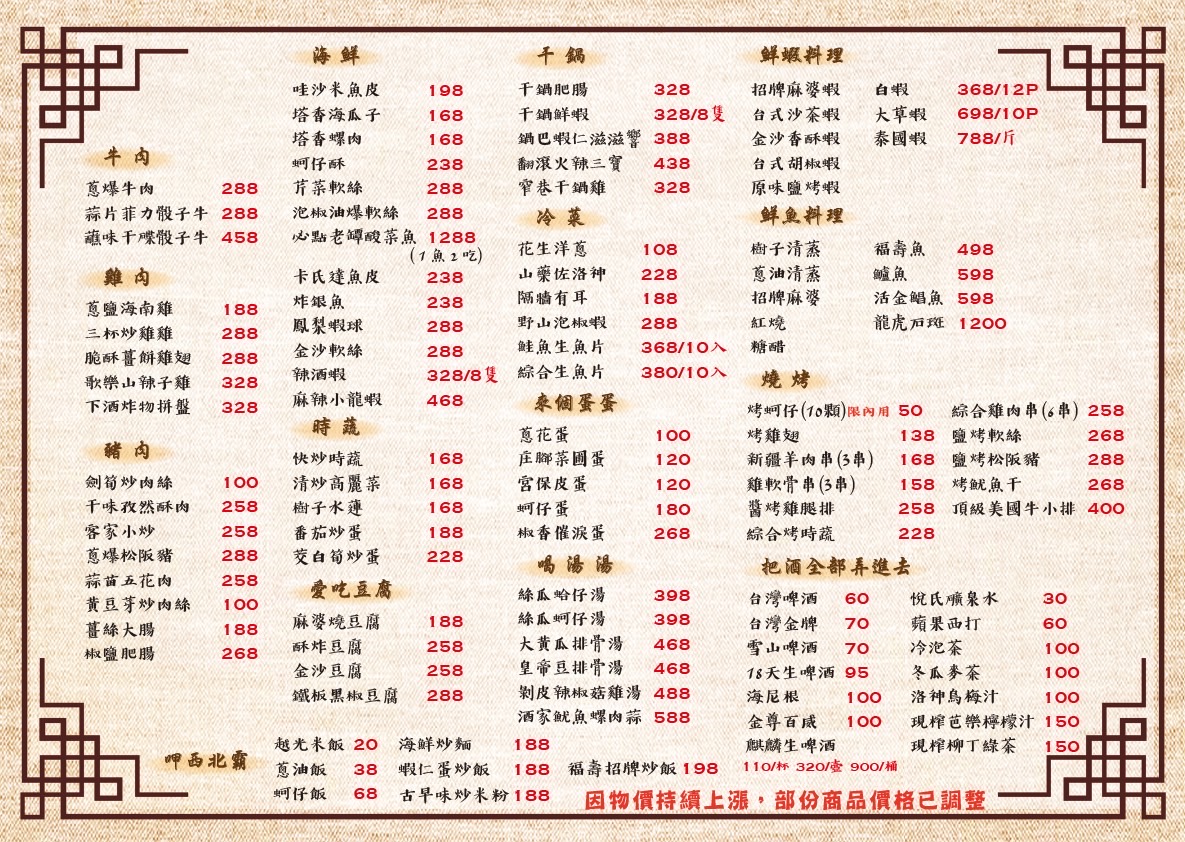 牛肉
蔥爆牛肉 288
蒜片菲力骰子牛 288
蘸味干碟骰子牛 458
雞肉
蔥鹽海南雞 188
三杯炒雞雞 288
脆酥薑餅雞翅 288
歌樂山辣子雞 328
下酒炸物拼盤 328
豬肉
劍筍炒肉絲 100
干味孜然酥肉 258
客家小炒 258
蔥爆松阪豬 288
蒜苗五花肉 258
黃豆芽炒肉絲 100
薑絲大腸 188
椒鹽肥腸 268
海鮮
哇沙米魚皮 198
塔香海瓜子 168
塔香螺肉 168
蚵仔酥 238
芹菜軟絲 288
泡椒油爆軟絲 288
必點老罈酸菜魚 1288
(1魚2吃)
卡氏達魚皮 238
炸銀魚 238
鳳梨蝦球 288
金沙軟絲 288
辣酒蝦 328/8隻
麻辣小龍蝦 468
時蔬
快炒時蔬 168
清炒高麗菜 168
樹子水蓮 168
番茄炒蛋 188
茭白筍炒蛋 228
愛吃豆腐
麻婆燒豆腐 188
酥炸豆腐 258
金沙豆腐 258
鐵板黑椒豆腐 288
干鍋
干鍋肥腸 328
干鍋鮮蝦 328/8隻
鍋巴蝦仁滋滋響 388
翻滾火辣三寶 438
窄巷干鍋雞 328
冷菜
花生洋蔥 108
山藥佐洛神 228
隔牆有耳 188
野山泡椒蝦 288
鮭魚生魚片 368/10入
綜合生魚片 380/10入
來個蛋蛋
蔥花蛋 100
庄腳菜圃蛋 120
宮保皮蛋 120
蚵仔蛋 180
椒香催淚蛋 268
喝湯湯
絲瓜蛤仔湯 398
絲瓜蚵仔湯 398
大黃瓜排骨湯 468
皇帝豆排骨湯 468
剝皮辣椒菇雞湯 488
酒家魷魚螺肉蒜 588
鮮蝦料理
招牌麻婆蝦 白蝦 368/12P
台式沙茶蝦 大草蝦 698/10P
金沙香酥蝦 泰國蝦 788/斤
台式胡椒蝦
原味鹽烤蝦
鮮魚料理
樹子清蒸 福壽魚 498
蔥油清蒸 鱸魚 598
招牌麻婆 活金鯧魚 598
紅燒 龍虎石斑 1200
糖醋
燒烤
烤蚵仔(10顆)限內用 50 綜合雞肉串(6串) 258
烤雞翅 138 鹽烤軟絲 268
新疆羊肉串(3串) 168 鹽烤松阪豬 288
雞軟骨串(3串) 158 烤魷魚干 268
醬烤雞腿排 258 頂級美國牛小排 400
綜合烤時蔬 228
把酒全部弄進去
台灣啤酒 60 悅氏礦泉水 30
台灣金牌 70 蘋果西打 60
雪山啤酒 70 冷泡茶 100
18天生啤酒 95 冬瓜麥茶 100
海尼根 100 洛神烏梅汁 100
金尊百威 100 現榨芭樂檸檬汁 150
麒麟生啤酒 現榨柳丁綠茶 150
110/杯 320/壺 900/桶
呷西北霸
越光米飯 20 海鮮炒麵 188
蔥油飯 38 蝦仁蛋炒飯 188 福壽招牌炒飯 198
蚵仔飯 68 古早味炒米粉 188
因物價持續上漲，部份商品價格已調整